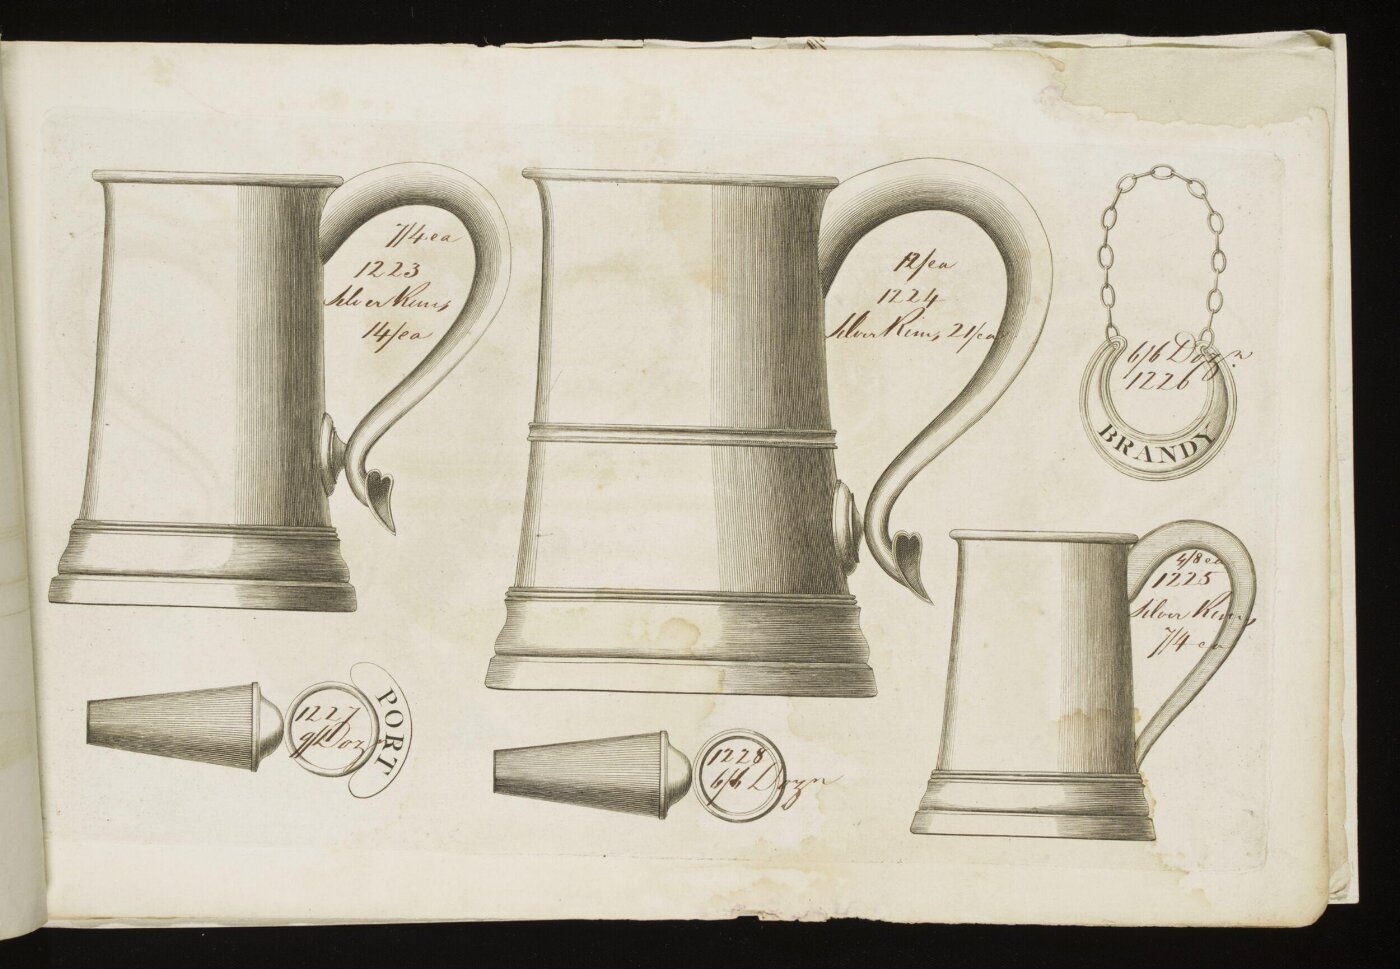 7/4 ea
1223
Silver Rims
14/ea
12/ea
1224
Silver Rims 21/ea
6/6 Dozn
1226
BRANDY
4/8 ea
1225
Silver Rims
7/4 ea
1227
9/ Dozn
PORT
1228
6/6 Dozn